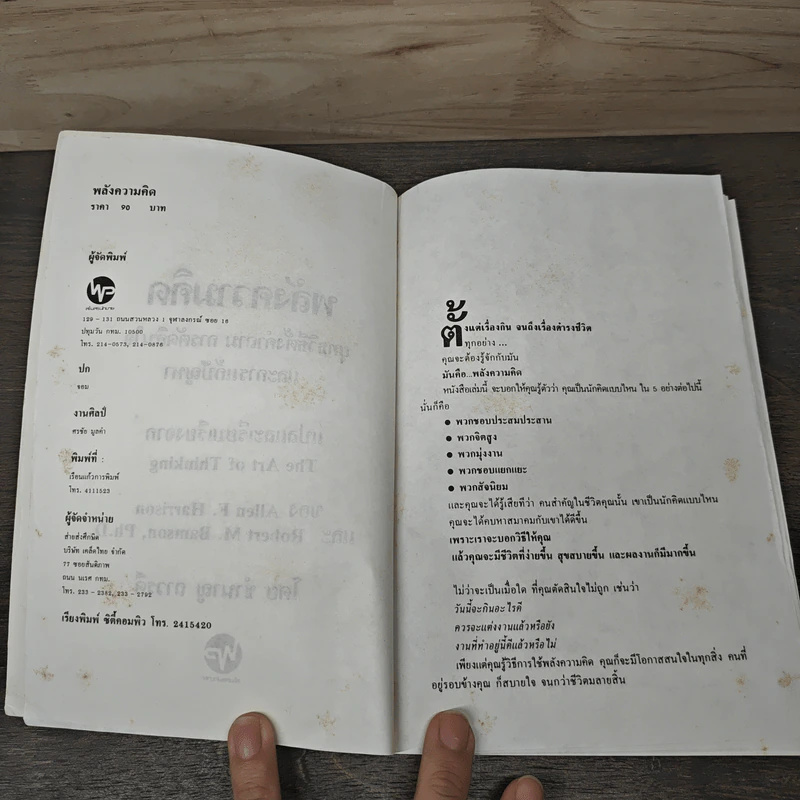 พลังความคิด
ราคา ๙๐ บาท
ผู้จัดพิมพ์
129 - 131 ถนนสวนหลวง 1 จุฬาลงกรณ์ ซอย 18
ปทุมวัน กทม. 10500
โทร. 214-0573, 214-0876
ปก
จอม
งานศิลป์
ศรชัย มูลคำ
พิมพ์ที่ :
เรือนแก้วการพิมพ์
โทร. 4111523
ผู้จัดจำหน่าย
สายส่งศึกษิต
บริษัท เคล็ดไทย จำกัด
77 ซอยสันติภาพ
ถนน นเรศ กทม.
โทร. 233 - 2382, 233 - 2792
เรียงพิมพ์ ซิตี้คอมพิว โทร. 2415420
ตั้งแต่เรื่องกิน จนถึงเรื่องดำรงชีวิต
ทุกอย่าง ...
คุณจะต้องรู้จักกับมัน
มันคือ...พลังความคิด
หนังสือเล่มนี้ จะบอกให้คุณรู้ตัวว่า คุณเป็นนักคิดแบบไหน ใน 5 อย่างต่อไปนี้
นั่นก็คือ
● พวกชอบประสมประสาน
● พวกจิตสูง
● พวกมุ่งงาน
● พวกชอบแยกแยะ
● พวกสัจนิยม
และคุณจะได้รู้เสียทีว่า คนสำคัญในชีวิตคุณนั้น เขาเป็นนักคิดแบบไหน
คุณจะได้คบหาสมาคมกับเขาได้ดีขึ้น
เพราะเราจะบอกวิธีให้คุณ
แล้วคุณจะมีชีวิตที่ง่ายขึ้น สุขสบายขึ้น และผลงานก็มีมากขึ้น
ไม่ว่าจะเป็นเมื่อใด ที่คุณตัดสินใจไม่ถูก เช่นว่า
วันนี้จะกินอะไรดี
ควรจะแต่งงานแล้วหรือยัง
งานที่ทำอยู่นี้ดีแล้วหรือไม่
เพียงแต่คุณรู้วิธีการใช้พลังความคิด คุณก็จะมีโอกาสสนใจในทุกสิ่ง คนที่
อยู่รอบข้างคุณ ก็สบายใจ จนกว่าชีวิตมลายสิ้น